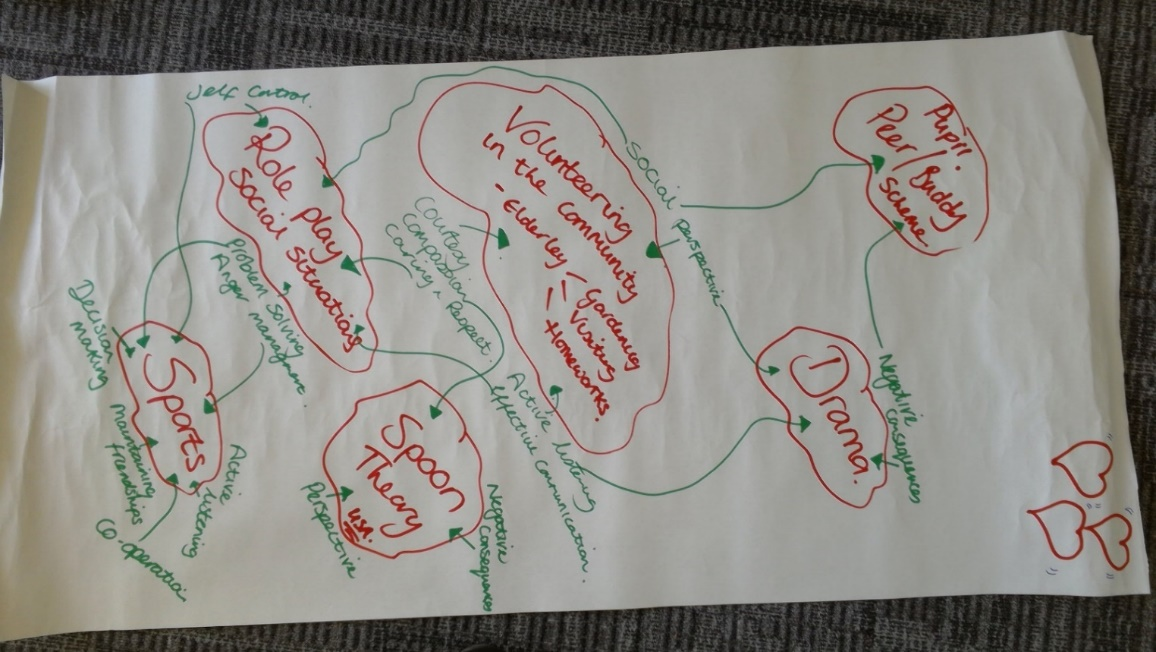 Self Control.
Role play
Social Situations
Volunteering
in the community
- Elderley - Gardening
- Visiting
- Homeworks.
Pupil
Peer/Buddy
Scheme
Social perspective
Courtesy
Compassion
Caring & Respect.
Problem Solving
Anger managment.
Decision
making
Sports
maintaining
friendships
Co-operatio
Active
listening
Spoon
Theory
USA.
Perspective
Negative
consequences
Active listening
effective communication.
Drama.
Negative
consequences